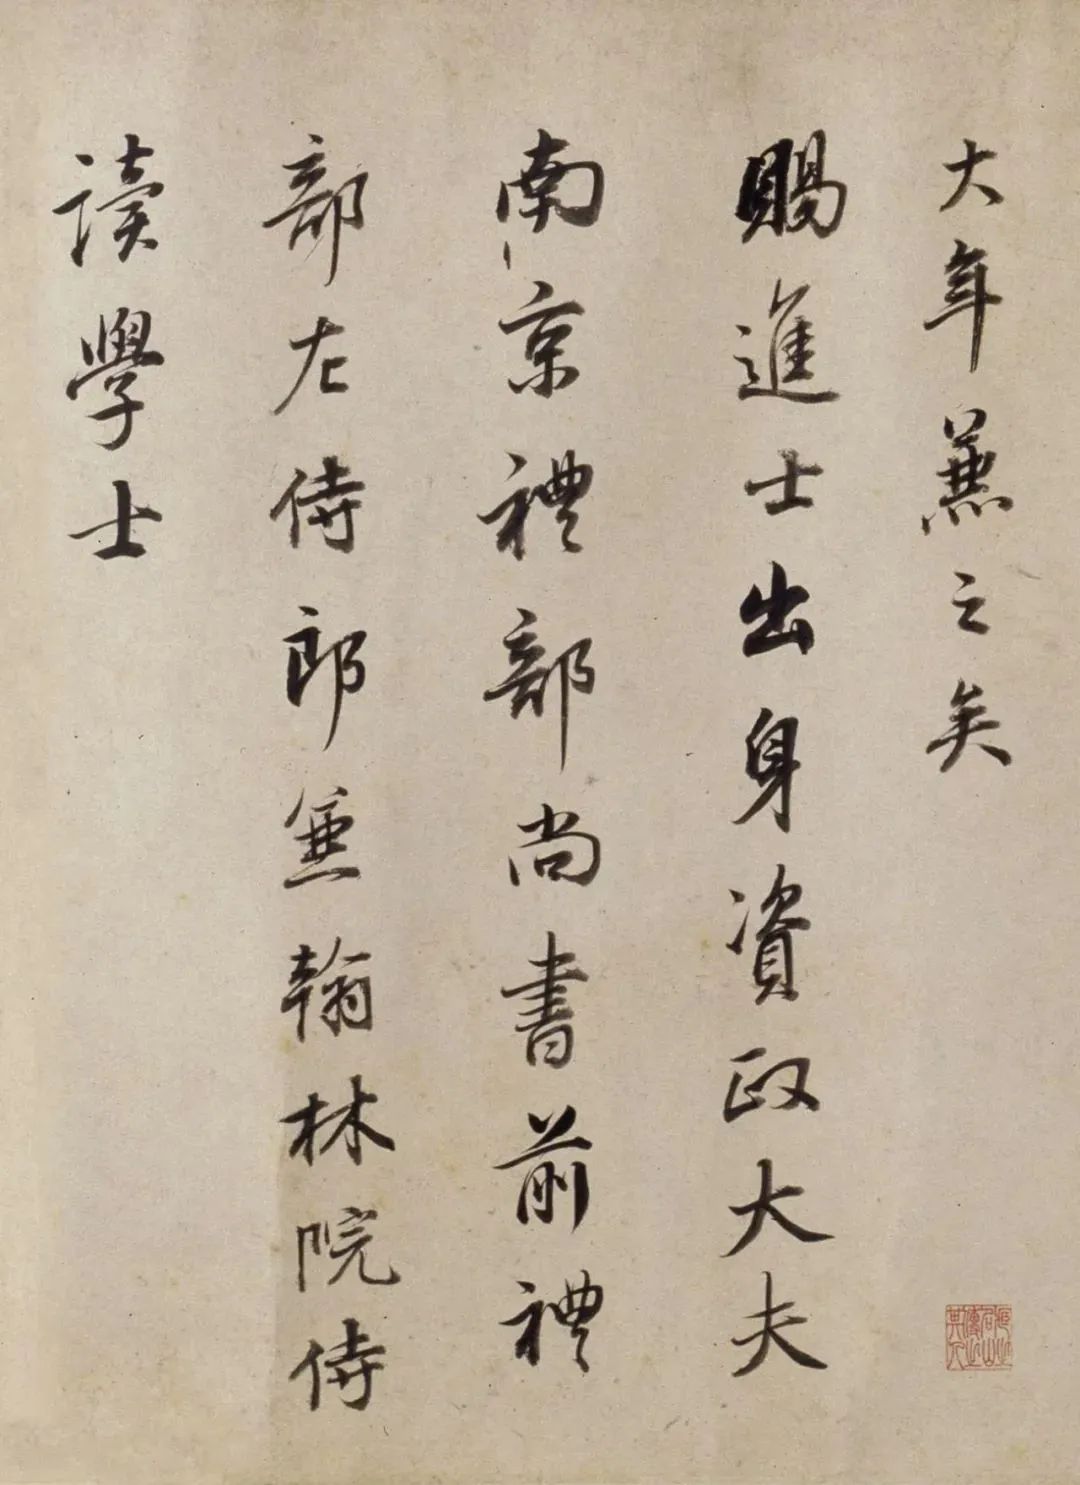 大年兼之矣
賜進士出身資政大夫
南京禮部尚書前禮
部左侍郎兼翰林院侍
讀學士